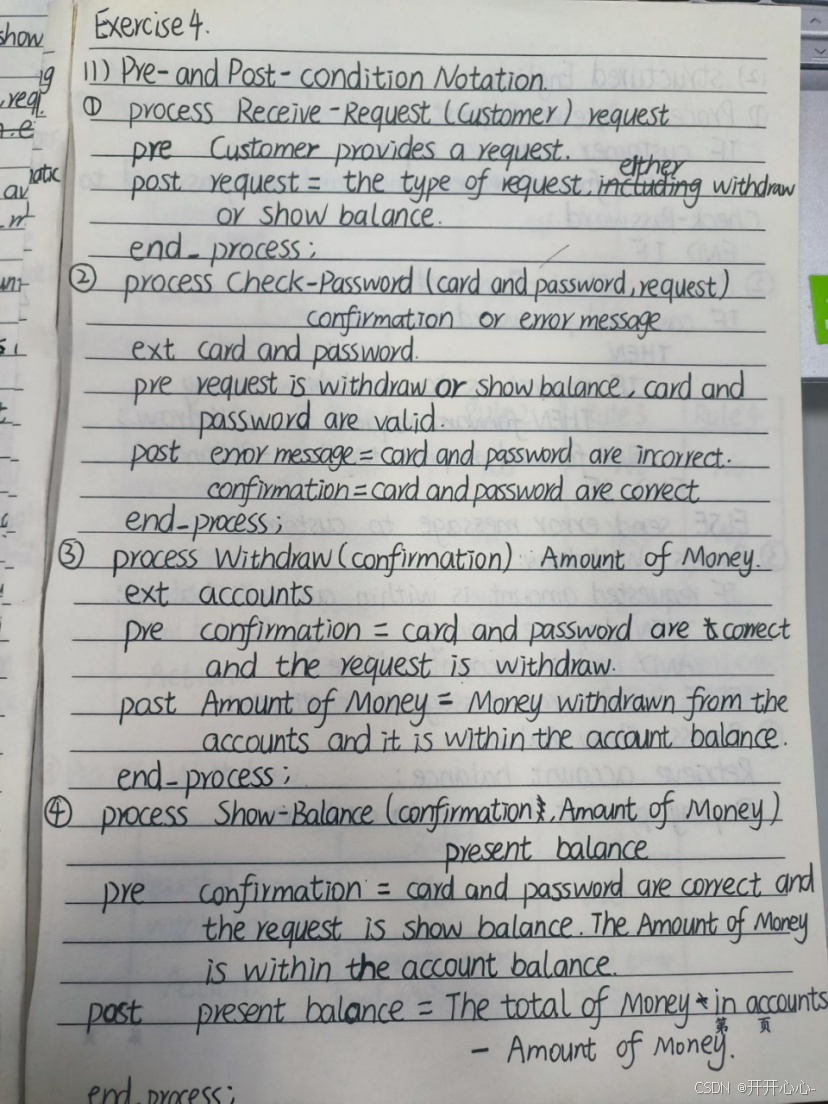 Exercise 4.
(1) Pre- and Post-condition Notation.
① process Receive-Request (Customer) request
pre Customer provides a request.
post request = the type of request, either withdraw
or show balance.
end_process;
② process Check-Password (card and password, request)
confirmation or error message
ext card and password.
pre request is withdraw or show balance, card and
password are valid.
post error message = card and password are incorrect.
confirmation = card and password are correct
end_process;
③ process Withdraw (confirmation) Amount of Money.
ext accounts
pre confirmation = card and password are correct
and the request is withdraw.
post Amount of Money = Money withdrawn from the
accounts and it is within the account balance.
end_process;
④ process Show-Balance (confirmation, Amount of Money)
present balance
pre confirmation = card and password are correct and
the request is show balance. The Amount of Money
is within the account balance.
post present balance = The total of Money in accounts
第 页
- Amount of Money.
end_process;
show
req.
CSDN @开开心心-